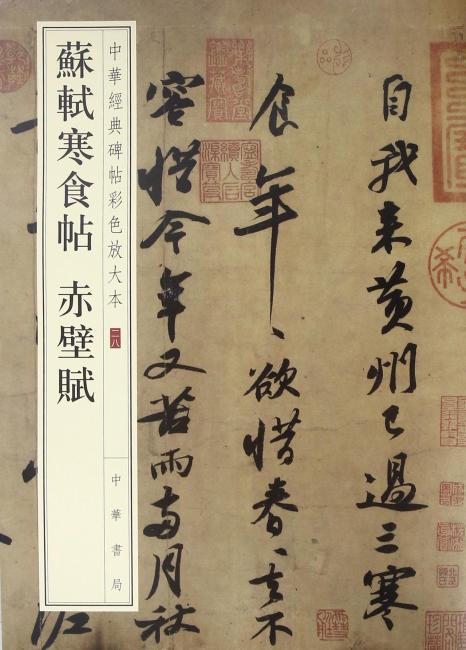 自我来黄州已過三寒
食年々欲惜春々去不
容惜今年又苦雨兩月秋
中華經典碑帖彩色放大本 二八
中華書局
蘇軾寒食帖 赤壁賦